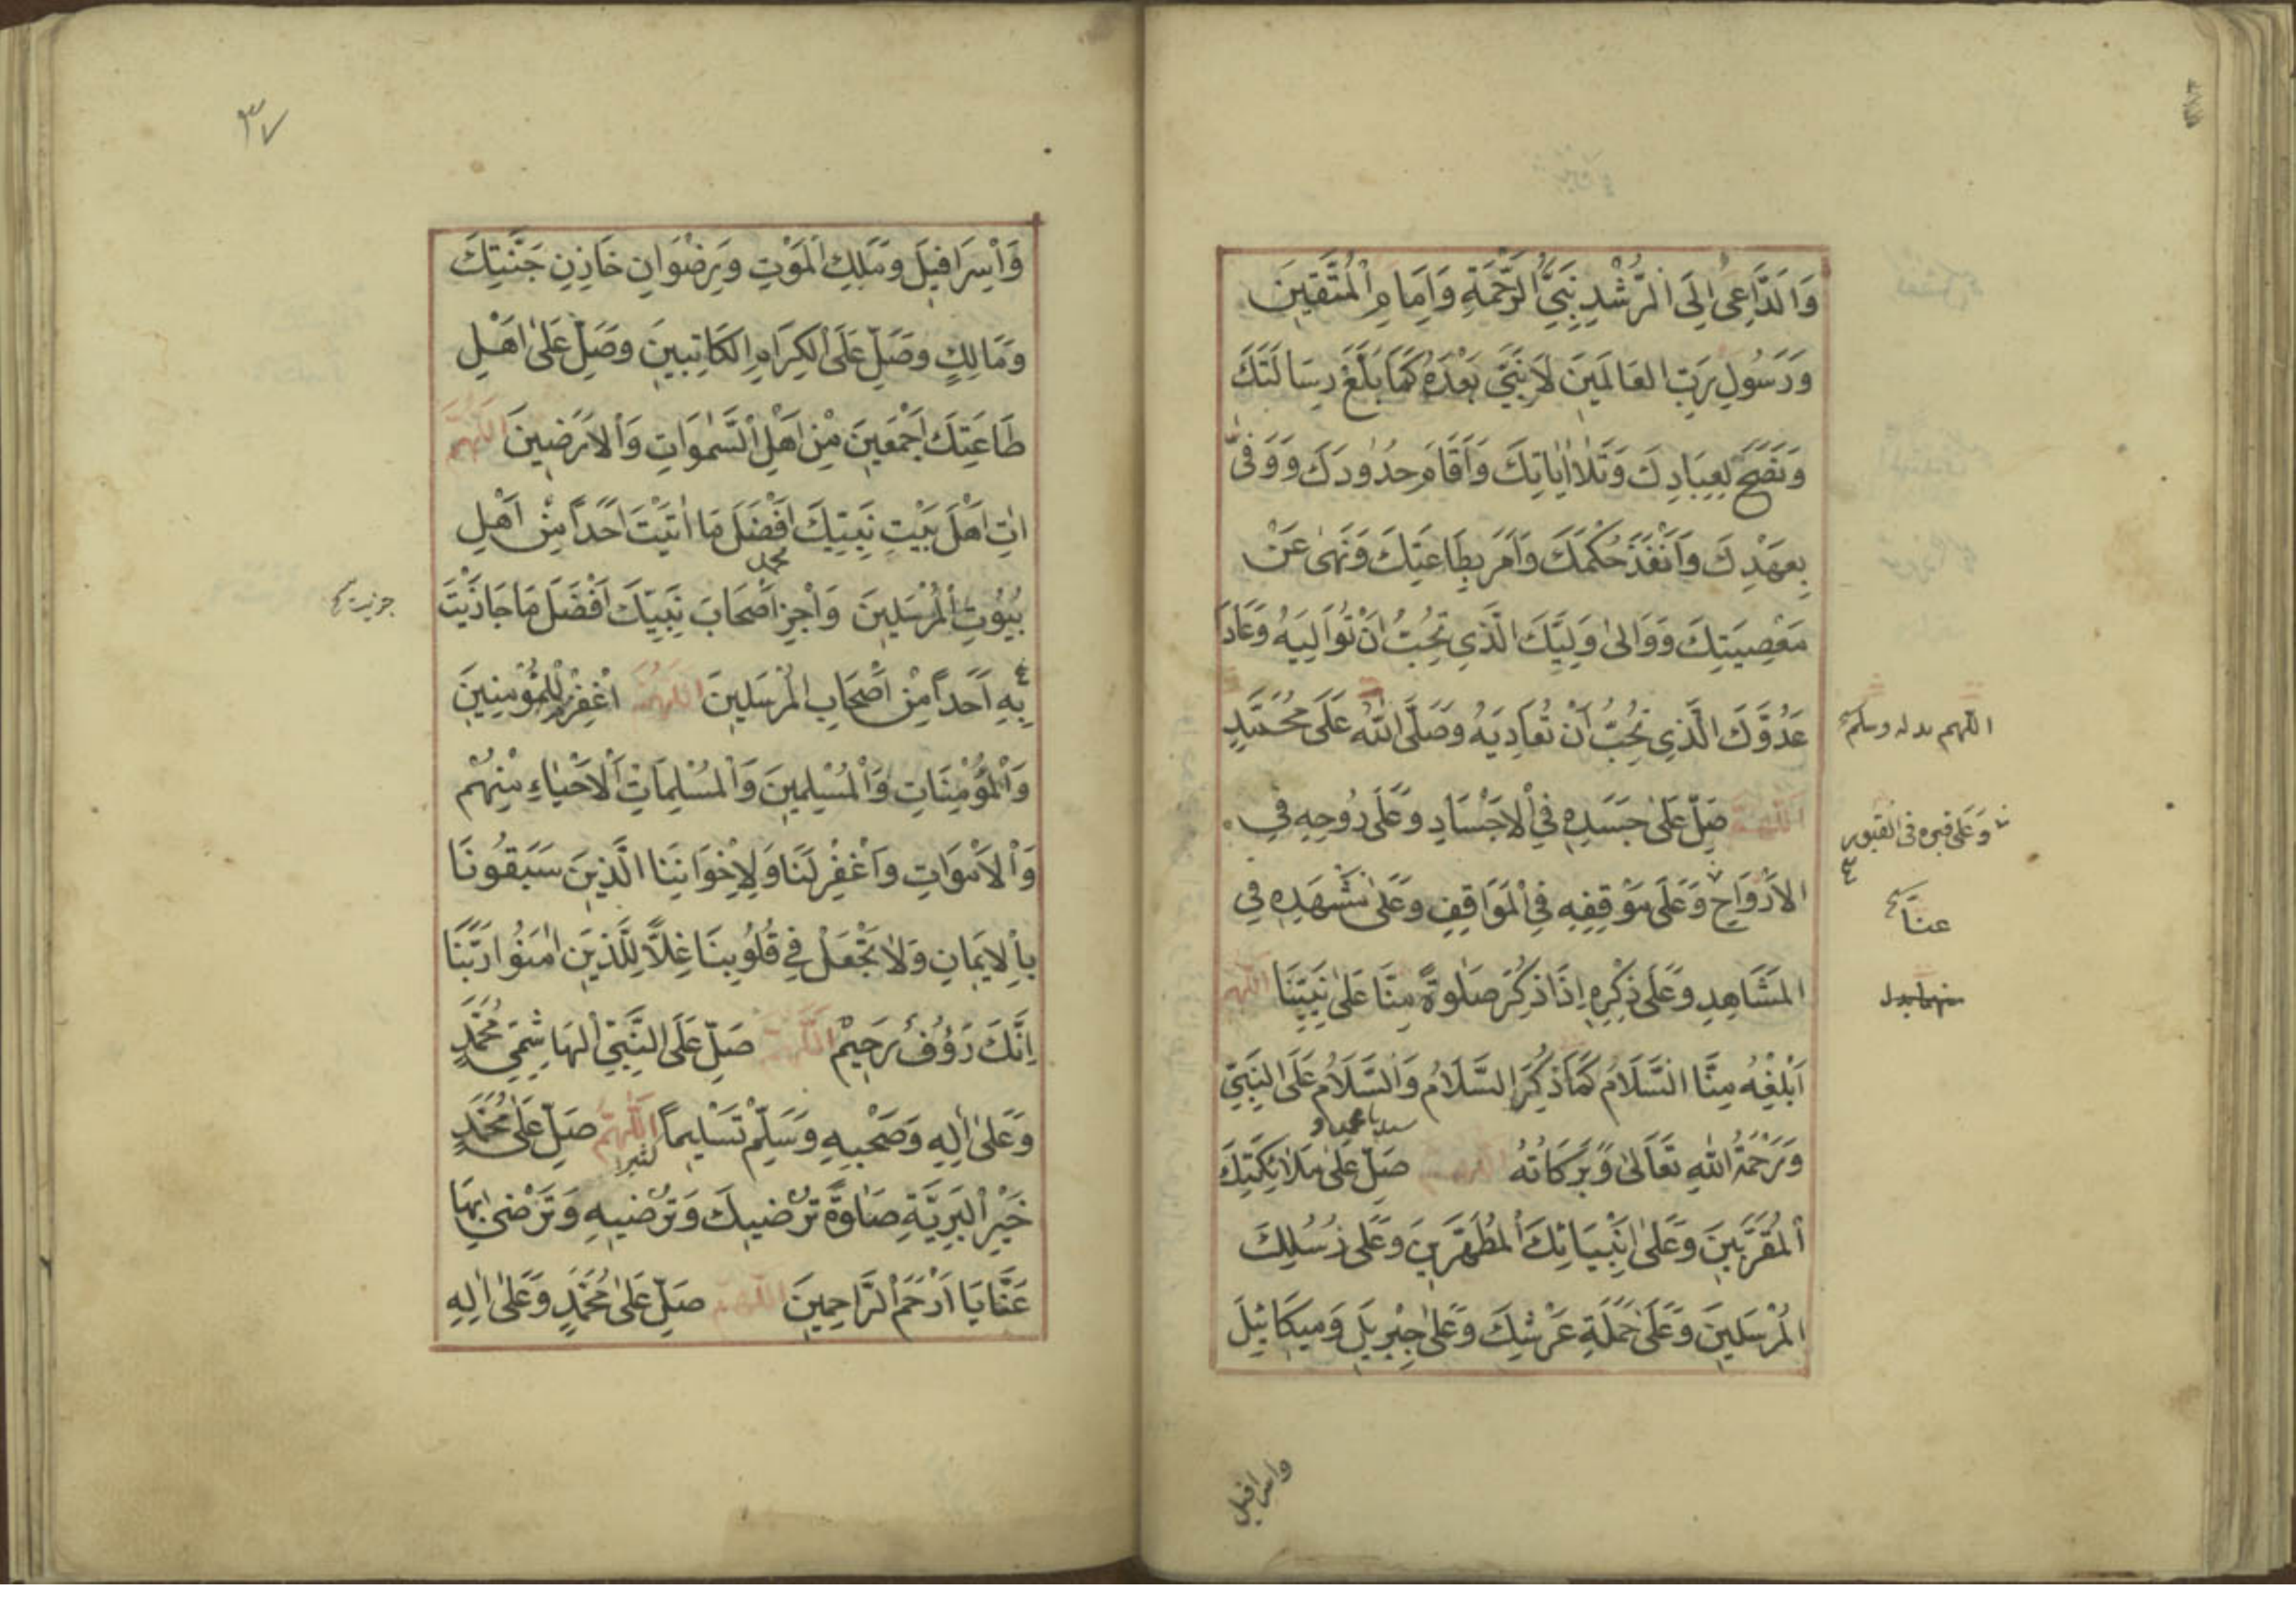 وَالدَّاعِي اِلَى الرُّشْدِ نَبِيِّ الرَّحْمَةِ وَاِمَامِ الْمُتَّقِينَ
وَرَسُولِ رَبِّ العَالَمِينَ لَا نَبِيَّ بَعْدَهُ كَمَا بَلَّغَ رِسَالَتَكَ
وَنَصَحَ لِعِبَادِكَ وَتَلَا اٰيَاتِكَ وَاَقَامَ حُدُودَكَ وَوَفَّى
بِعَهْدِكَ وَاَنْفَذَ حُكْمَكَ وَاَمَرَ بِطَاعَتِكَ وَنَهٰى عَنْ
مَعْصِيَتِكَ وَوَالٰى وَلِيَّكَ الَّذِي تُحِبُّ اَنْ تُوَالِيَهُ وَعَادَ
عَدُوَّكَ الَّذِي تُحِبُّ اَنْ تُعَادِيَهُ وَصَلَّى اللّٰهُ عَلَى مُحَمَّدٍ
اَللّٰهُمَّ صَلِّ عَلٰى جَسَدِهِ فِي الْاَجْسَادِ وَعَلٰى رُوحِهِ فِي
الاَرْوَاحِ وَعَلَى مَوْقِفِهِ فِي الْمَوَاقِفِ وَعَلٰى مَشْهَدِهِ فِي
المَشَاهِدِ وَعَلٰى ذِكْرِهِ اِذَا ذُكِرَ صَلٰوةً مِنَّا عَلٰى نَبِيِّنَا اَللّٰهُمَّ
اَبْلِغْهُ مِنَّا السَّلَامُ كَمَا ذُكِرَ السَّلَامُ وَالسَّلَامُ عَلَى النَّبِيِّ
وَرَحْمَةُ اللّٰهِ تَعَالٰى وَبَرَكَاتُهُ اللّٰهُمَّ صَلِّ عَلٰى مَلَائِكَتِكَ
اَلْمُقَرَّبِينَ وَعَلٰى اَنْبِيَائِكَ الْمُطَهَّرِينَ وَعَلٰى رُسُلِكَ
الْمُرْسَلِينَ وَعَلٰى حَمَلَةِ عَرْشِكَ وَعَلٰى جِبْرِيلَ وَمِيكَائِيلَ
وَعَلٰى قبره فى القبور
عنَّا
واسرافيل
٣٧
وَاِسْرَافِيلَ وَمَلَكِ الْمَوْتِ وَرِضْوَانِ خَازِنِ جَنَّتِكَ
وَمَالِكٍ وَصَلِّ عَلَى الْكِرَامِ الكَاتِبِينَ وَصَلِّ عَلٰى اَهْلِ
طَاعَتِكَ اَجْمَعِينَ مِنْ اَهْلِ السَّمٰوَاتِ وَالْاَرَضِينَ اَللّٰهُمَّ
اٰتِ اَهْلَ بَيْتِ نَبِيِّكَ اَفْضَلَ مَا اٰتَيْتَ اَحَدًا مِنْ اَهْلِ
محمد
بُيُوتِ الْمُرْسَلِينَ وَاْجِزِ اَصْحَابَ نَبِيِّكَ اَفْضَلَ مَا جَازَيْتَ
جزيت
بِهِ اَحَدًا مِنْ اَصْحَابِ الْمُرْسَلِينَ اَللّٰهُمَّ اغْفِرْ لِلْمُؤْمِنِينَ
وَالْمُؤْمِنَاتِ وَالْمُسْلِمِينَ وَالْمُسْلِمَاتِ اَلْاَحْيَاءِ مِنْهُمْ
وَالْاَمْوَاتِ وَاغْفِرْ لَنَا وَلِاِخْوَانِنَا الَّذِينَ سَبَقُونَا
بِالْاِيمَانِ وَلَا تَجْعَلْ فِي قُلُوبِنَا غِلًّا لِلَّذِينَ اٰمَنُوا رَبَّنَا
اِنَّكَ رَؤُوفٌ رَحِيمٌ اَللّٰهُمَّ صَلِّ عَلَى النَّبِيِّ الْهَاشِمِيِّ مُحَمَّدٍ
وَعَلٰى اٰلِهِ وَصَحْبِهِ وَسَلِّمْ تَسْلِيماً اَللّٰهُمَّ صَلِّ عَلٰى مُحَمَّدٍ
خَيْرِ الْبَرِيَّةِ صَلٰوةً تُرْضِيكَ وَتُرْضِيهِ وَتَرْضٰى بِهَا
عَنَّا يَا اَرْحَمَ الرَّاحِمِينَ اَللّٰهُمَّ صَلِّ عَلٰى مُحَمَّدٍ وَعَلٰى اٰلِهِ